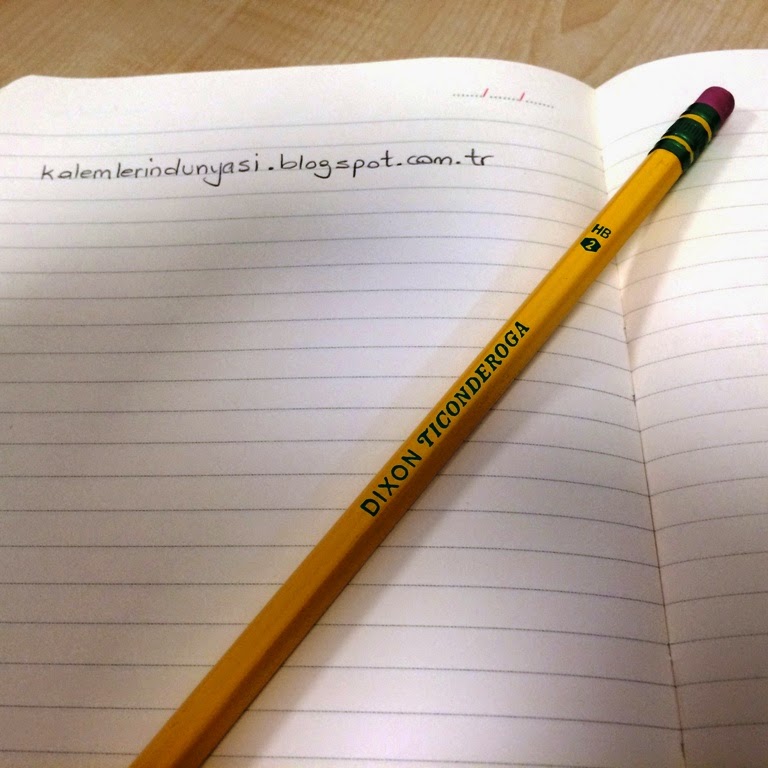 kalemlerindunyasi.blogspot.com.tr
HB
2
DIXON TICONDEROGA